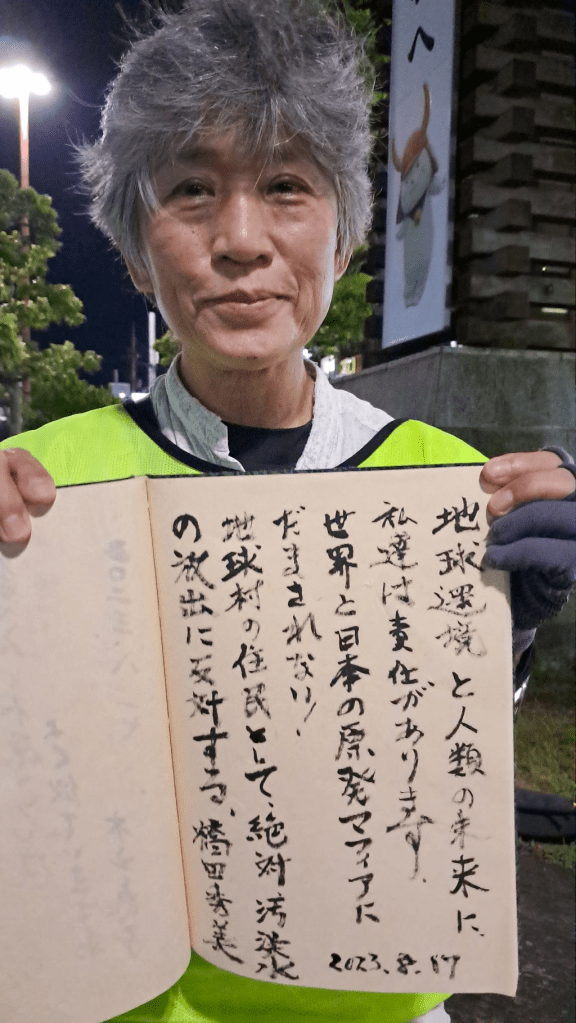 へ
地球還境と人類の未来に、
私達は責任があります、
世界と日本の原発マフィアに
だまされない!
地球村の住民として、絶対汚染水
の放出に反対する、橋田秀美
2023.8.17